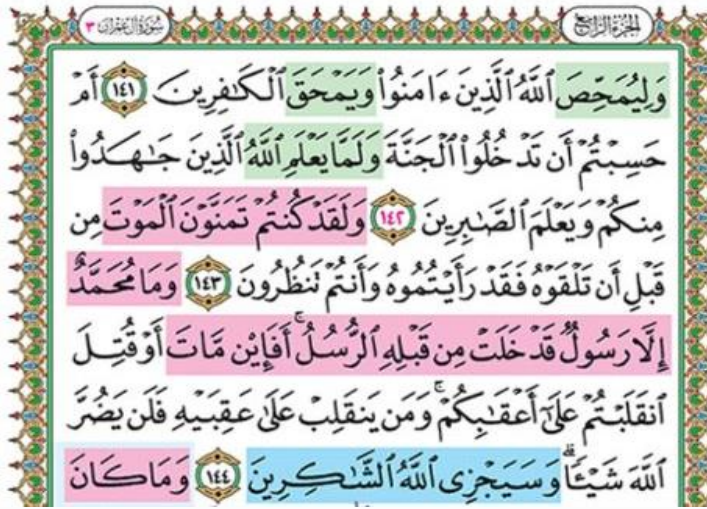 الجزء الرابع
سورة آل عمران ٣
وَلِيُمَحِّصَ ٱللَّهُ ٱلَّذِينَ ءَامَنُوا۟ وَيَمْحَقَ ٱلْكَـٰفِرِينَ ١٤١ أَمْ
حَسِبْتُمْ أَن تَدْخُلُوا۟ ٱلْجَنَّةَ وَلَمَّا يَعْلَمِ ٱللَّهُ ٱلَّذِينَ جَـٰهَدُوا۟
مِنكُمْ وَيَعْلَمَ ٱلصَّـٰبِرِينَ ١٤٢ وَلَقَدْ كُنتُمْ تَمَنَّوْنَ ٱلْمَوْتَ مِن
قَبْلِ أَن تَلْقَوْهُ فَقَدْ رَأَيْتُمُوهُ وَأَنتُمْ تَنظُرُونَ ١٤٣ وَمَا مُحَمَّدٌ
إِلَّا رَسُولٌ قَدْ خَلَتْ مِن قَبْلِهِ ٱلرُّسُلُ ۚ أَفَإِي۟ن مَّاتَ أَوْ قُتِلَ
ٱنقَلَبْتُمْ عَلَىٰٓ أَعْقَـٰبِكُمْ ۚ وَمَن يَنقَلِبْ عَلَىٰ عَقِبَيْهِ فَلَن يَضُرَّ
ٱللَّهَ شَيْـًٔا ۗ وَسَيَجْزِى ٱللَّهُ ٱلشَّـٰكِرِينَ ١٤٤ وَمَا كَانَ